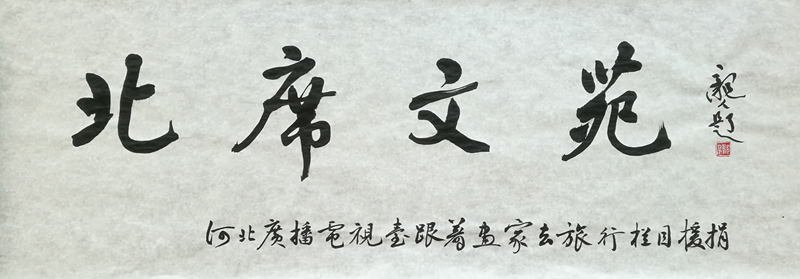 北席文苑
题
河北廣播電視臺跟着畫家去旅行栏目援捐